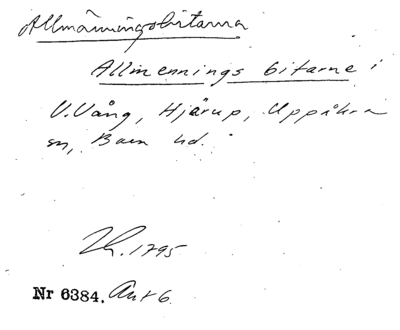 Allmänningsbitarna
Allmennings bitarne i
V. Vång, Hjärup, Uppåkra
sn, Bara hd.
1795
Nr 6384. Akt 6